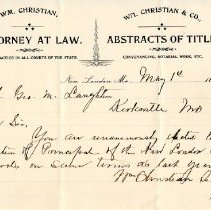 WM. CHRISTIAN,
ORNEY AT LAW.
PRACTICE IN ALL COURTS OF THE STATE.
WM. CHRISTIAN & CO.
ABSTRACTS OF TITLE
CONVEYANCING, NOTARIAL WORK, ETC.
New London, Mo. May 1st
Geo. M. Laughlin
Kirksville Mo
Sir,
You are unanimously elected
of Principal of the New London
on same terms as last year
Wm Christian